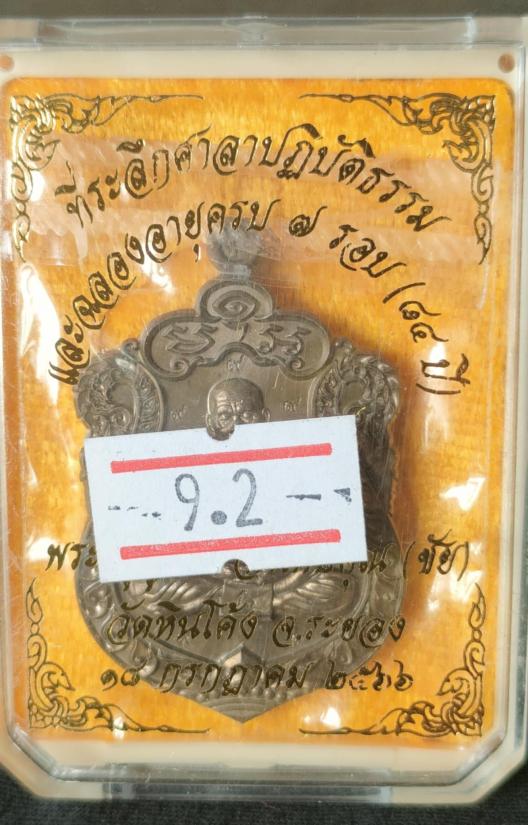 ที่ระลึกศาลาปฏิบัติธรรม
และฉลองอายุครบ ๗ รอบ (๘๔ ปี)
9.2
(ชัย)
วัดหินโค้ง จ.ระยอง
๑๘ กรกฎาคม ๒๕๖๖